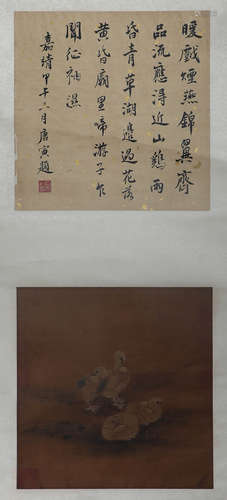 暖戲煙蕪錦翼齊
品流應得近山雞雨
昏青草湖邊過花落
黃昏廟里啼游子乍
聞征袖濕
嘉靖甲午六月唐寅題